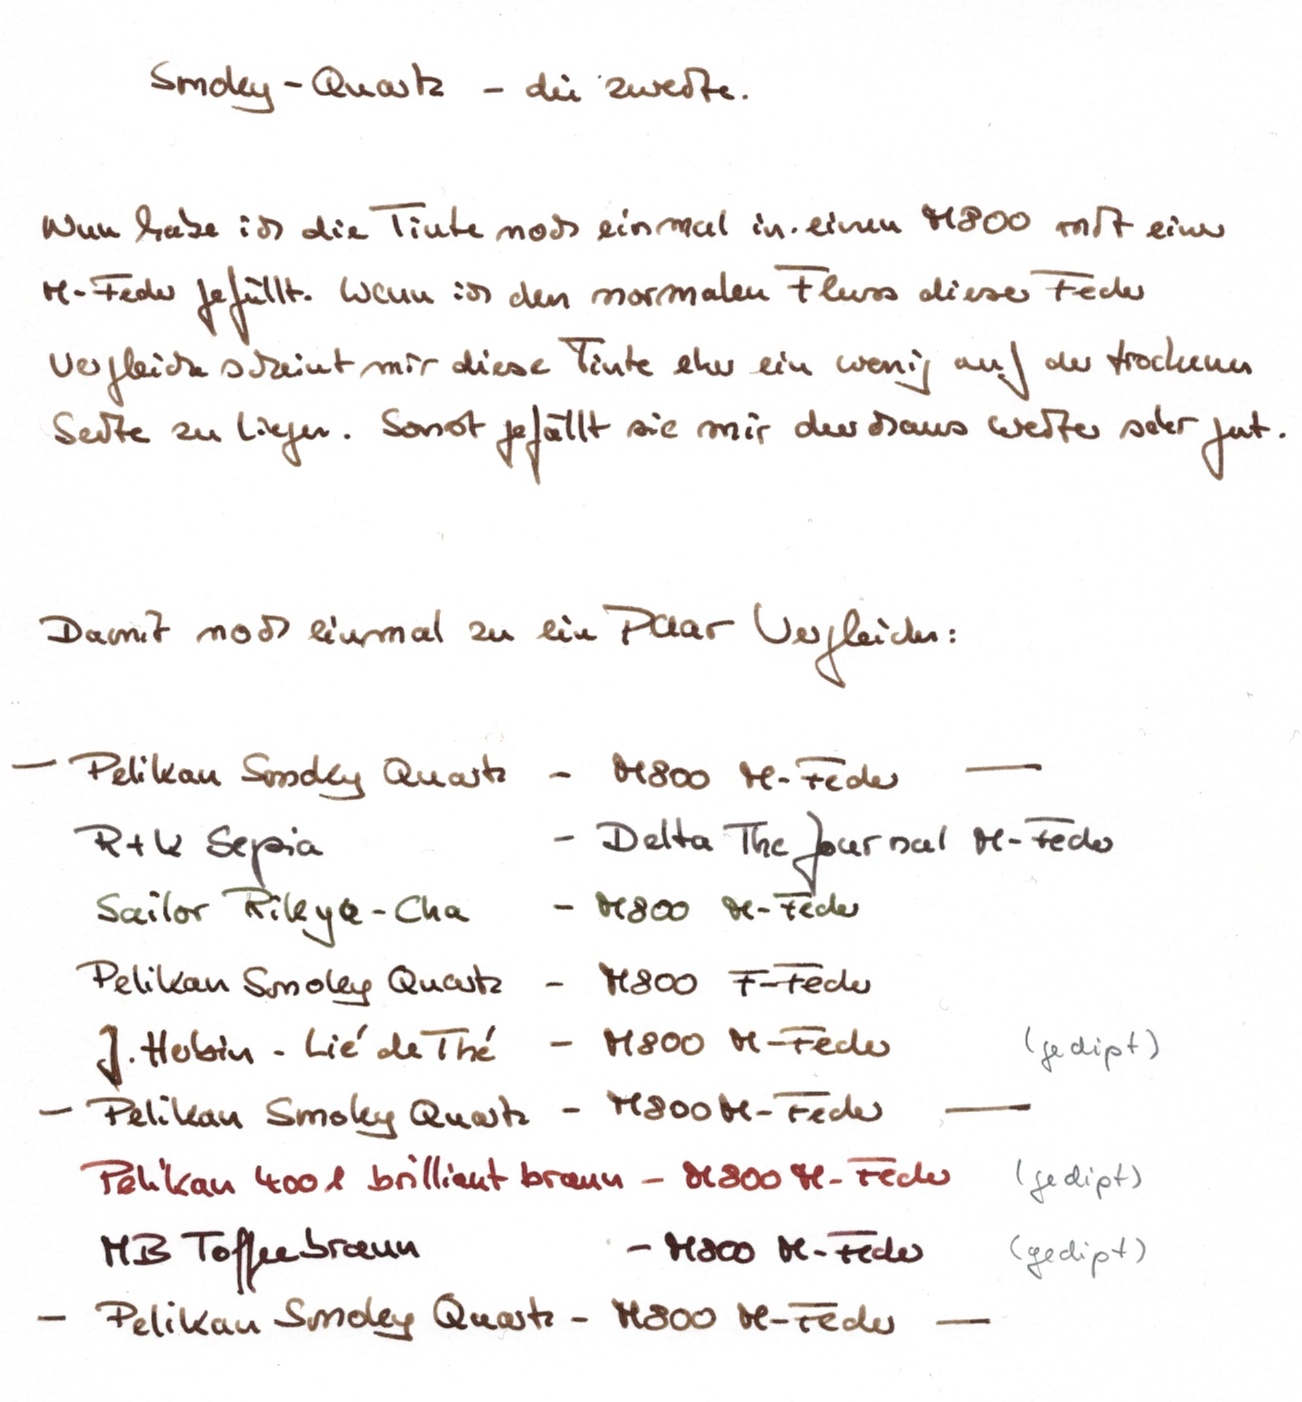 Smoky-Quartz - die zweite.
Nun habe ich die Tinte noch einmal in einen M800 mit einer
M-Feder gefüllt. Wenn ich den normalen Fluss dieser Feder
vergleiche scheint mir diese Tinte eher ein wenig auf der trockenen
Seite zu liegen. Sonst gefällt sie mir durchaus weiter sehr gut.
Damit noch einmal zu ein Paar Vergleichen:
— Pelikan Smoky Quartz - M800 M-Feder —
R+K Sepia - Delta The Journal M-Feder
Sailor Rikyo-Cha - M800 M-Feder
Pelikan Smoky Quartz - M800 F-Feder
J. Herbin - Lié de Thé - M800 M-Feder (gedipt)
— Pelikan Smoky Quartz - M800 M-Feder —
Pelikan 4001 brilliant braun - M800 M-Feder (gedipt)
MB Toffeebraun - M800 M-Feder (gedipt)
— Pelikan Smoky Quartz - M800 M-Feder —